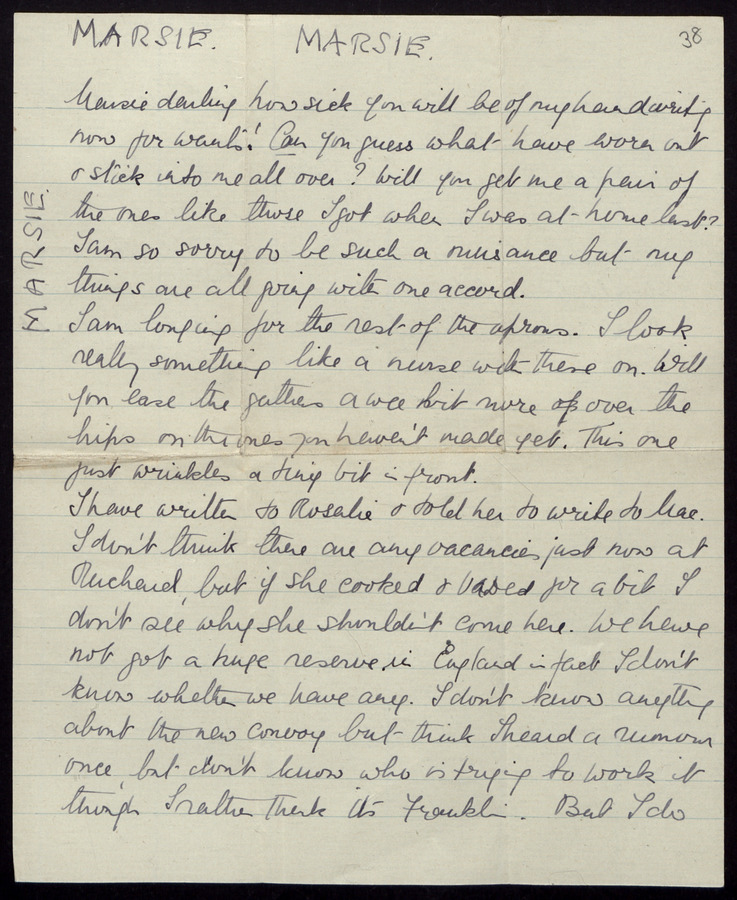 MARSIE. MARSIE. 38
MARSIE
Marsie darling how sick you will be of my handwriting
now for wants! Can you guess what have worn out
& stick into me all over? Will you get me a pair of
the ones like those I got when I was at home last?
I am so sorry to be such a nuisance but my
things are all going with one accord.
I am longing for the rest of the aprons. I look
really something like a nurse with these on. Will
you ease the gathers a wee bit more over the
hips on the ones you haven't made yet. This one
just wrinkles a tiny bit in front.
I have written to Rosalie & told her to write to Mac.
I don't think there are any vacancies just now at
but if she cooked & for a bit I
don't see why she shouldn't come here. We have
not got a huge reserve in England in fact I don't
know whether we have any. I don't know anything
about the new convoy but think I heard a rumour
once, but don't know who is trying to work it
though I rather think its Franklin. But I do